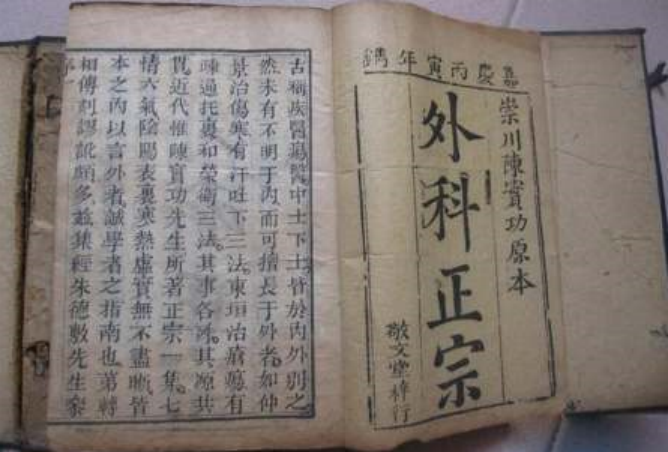 嘉慶丙寅年鐫
崇川陳實功原本
外科正宗
敬文堂梓行
古稱疾醫瘍醫中士下士皆於內外別之
然未有不明于內而可擅長于外者。如仲
景治傷寒有汗吐下三法。東垣治瘡瘍有
疎通托裏和榮衛三法。其事各殊。其源共
貫。近代惟陳實功先生所著正宗一集。七
情六氣陰陽表裏寒熱虛實無不盡晰皆
本之內以言外者。誠學者之指南也第轉
相傳刻謬訛頗多茲集經朱德敷先生參